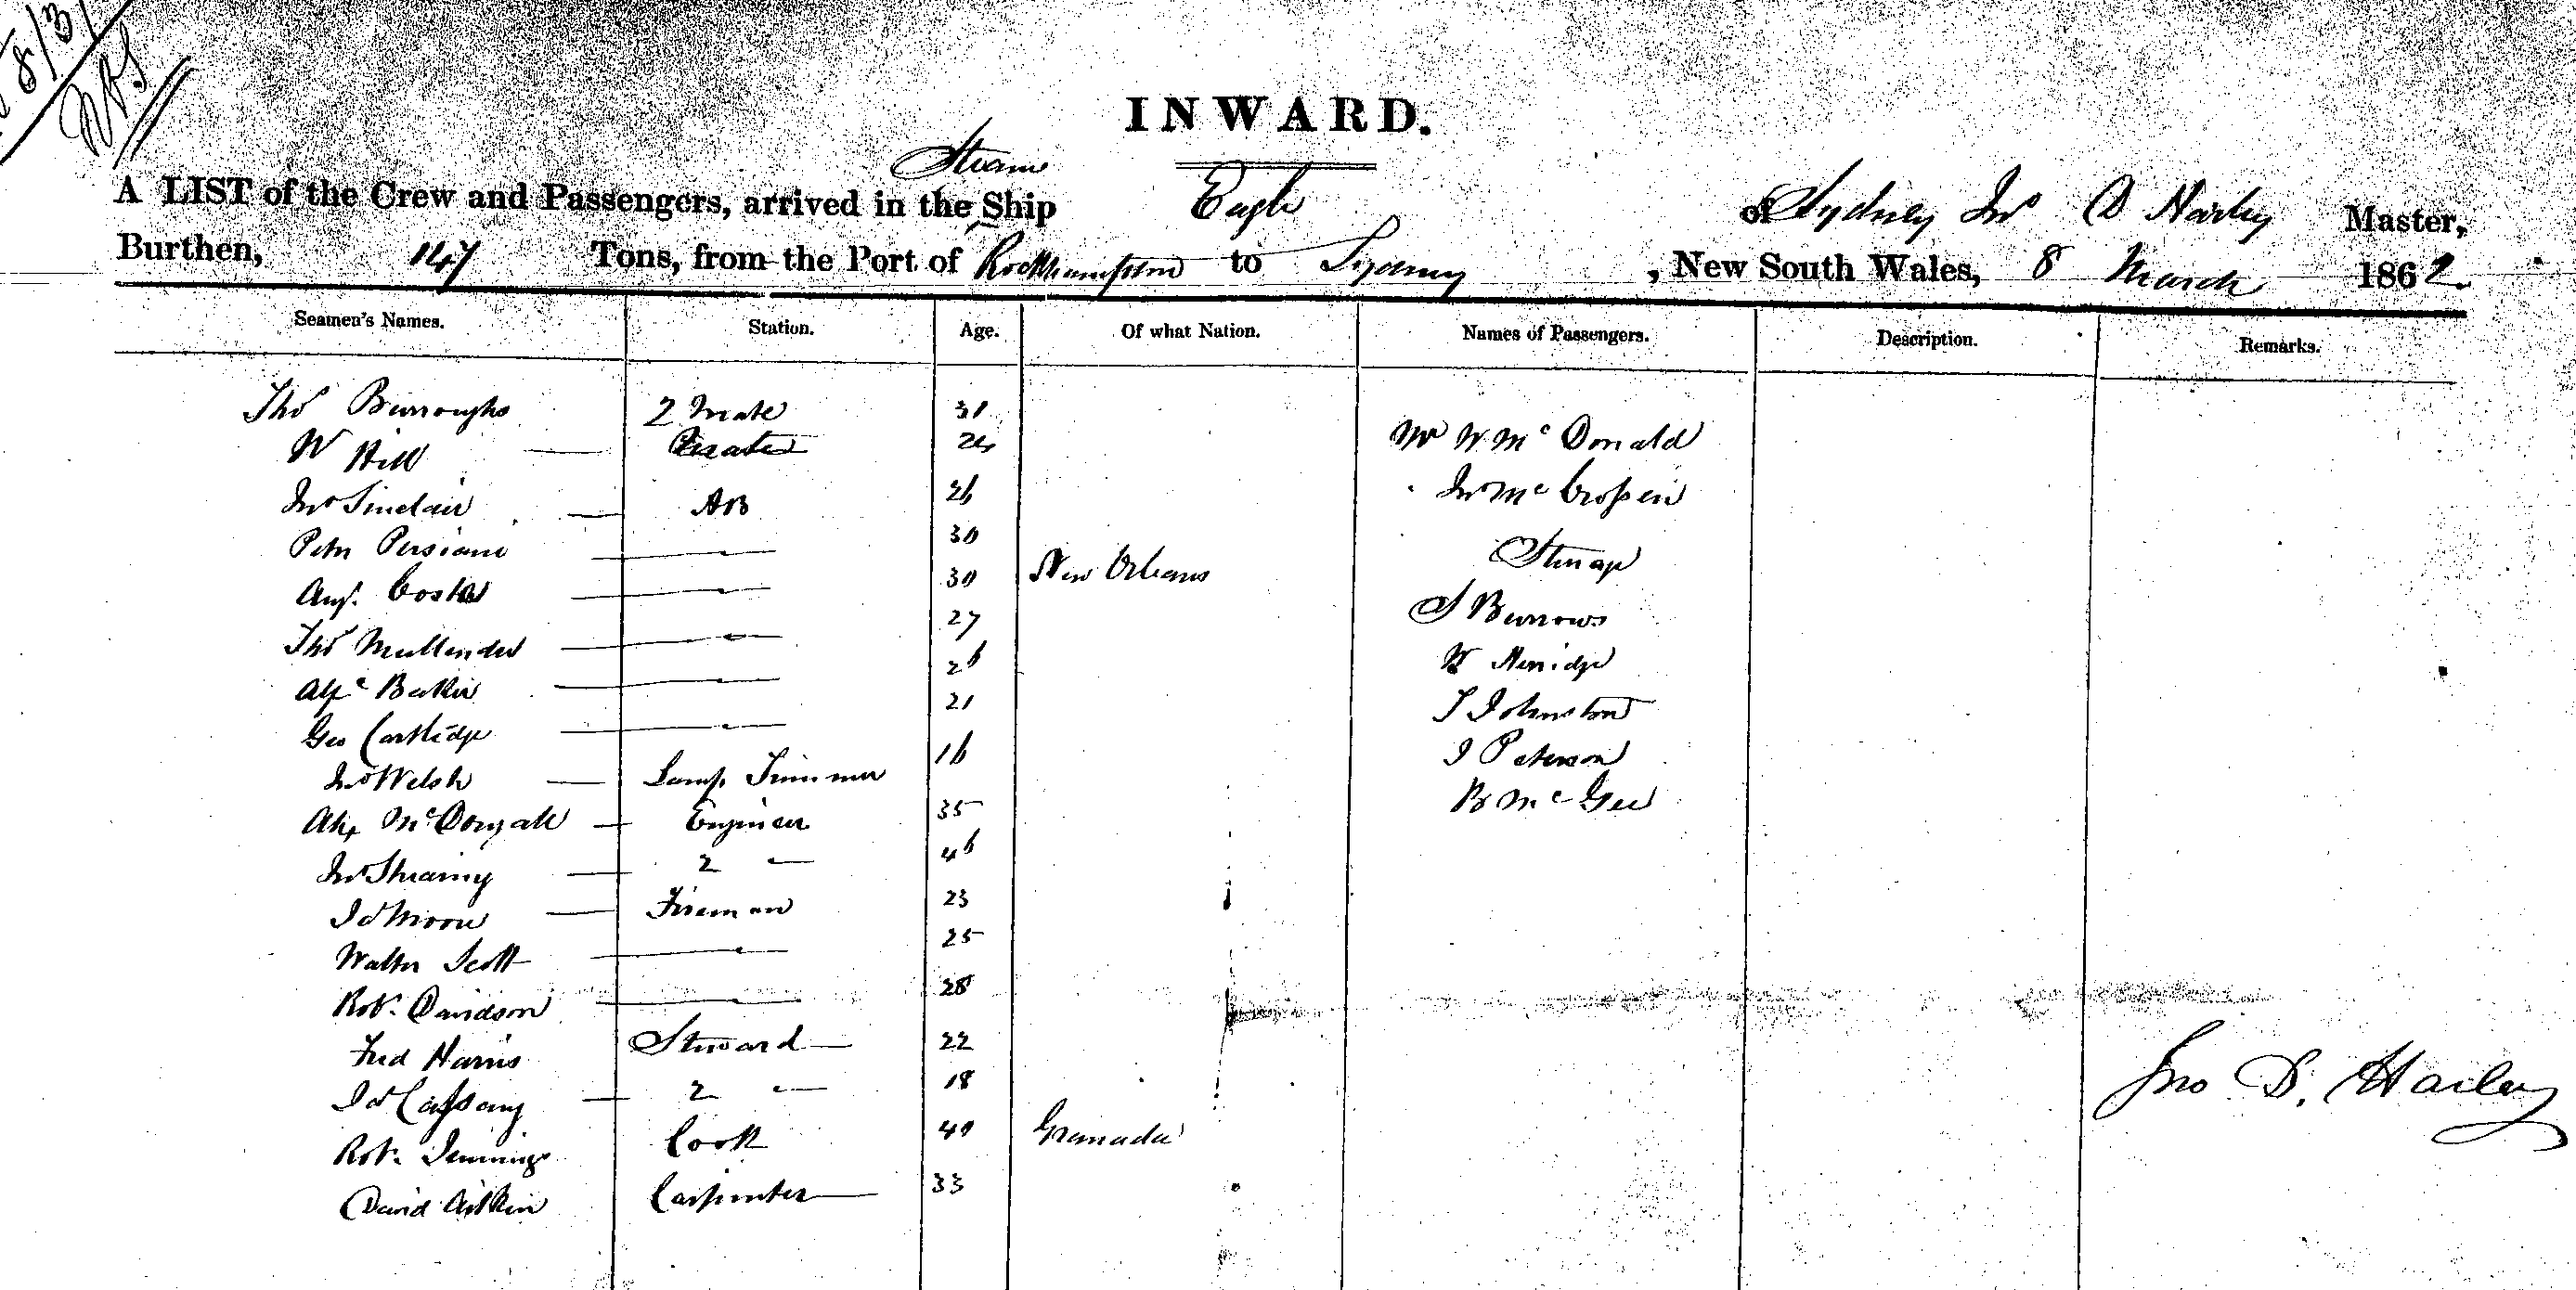 8/3/
INWARD.
Steam
A LIST of the Crew and Passengers, arrived in the Ship Eagle of Sydney Jno D Harley Master,
Burthen, 147 Tons, from the Port of Rockhampton to Sydney, New South Wales, 8 March 1862.
Seamen's Names. Station. Age. Of what Nation. Names of Passengers. Description. Remarks.
Thos Burroughs 2 Mate 31
W Hill 24 Mr W McDonald
Jno Sinclair AB 26 Jno Mc
Petr Persiani 30 Steerage
Aug. Costa 30 New Orleans
Thos Mullender 27 S Burrows
Alfc Baker 26 W Herridge
Geo Cartlidge 21 T Johnston
Jno Welsh Lamp Trimmer 16 J Peterson
Alex McDougall Engineer 35 B McGee
Jno 2 46
Jas Moore Fireman 23
Walter Scott 25
Robt. Davidson 28
Fred Harris Steward 22
2 18
Robt. Jennings Cook 40 Grenada
David Aitkin Carpenter 33
Jno D. Harley